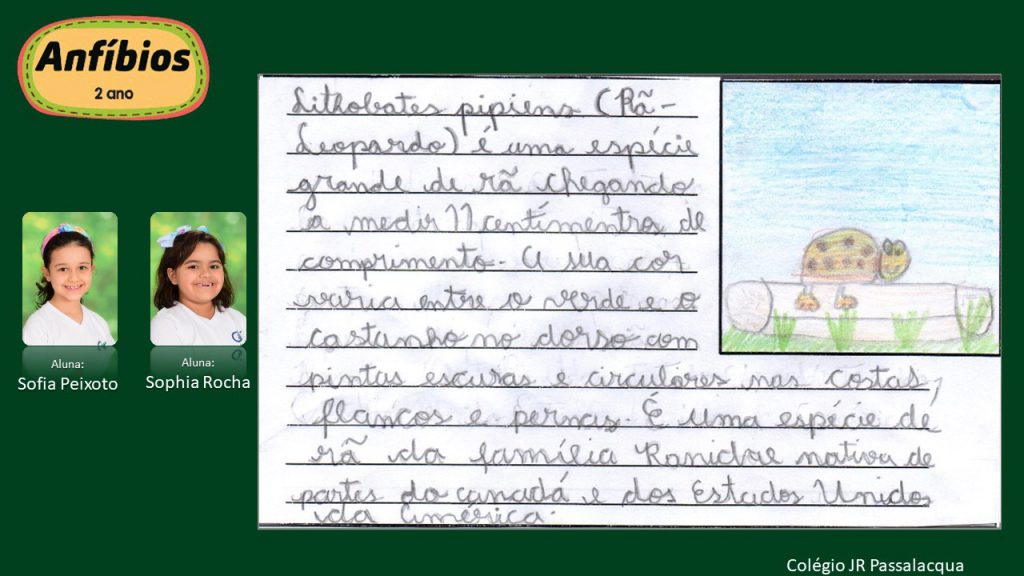 Anfíbios
2 ano
Lithobates pipiens (Rã-
Leopardo) é uma espécie
grande de rã chegando
a medir 11 centímentros de
comprimento. A sua cor
varia entre o verde e o
castanho no dorso com
pintas escuras e circulares nas costas,
flancos e pernas. É uma espécie de
rã da família Ranidae nativa de
partes do canadá e dos Estados Unidos
da América.
Aluna:
Sofia Peixoto
Aluna:
Sophia Rocha
Colégio JR Passalacqua